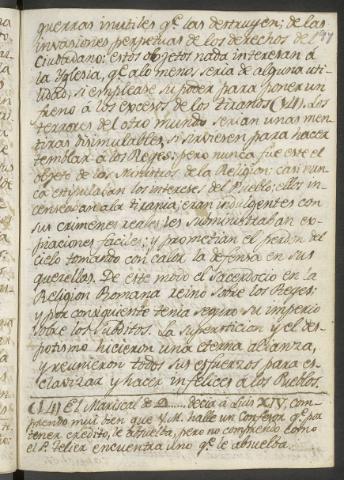 guerras inutiles q.e las destruyen; de las
invasiones perpetuas de los derechos del
Ciudadano; estos objetos nada interesan á
la Iglesia, q.e alo menos sería de alguna uti-
lidad, si emplease su poder para poner un
freno á los excesos de los tiranos (14). Los
terrores del otro mundo serían unas men-
tiras disimulables, si sirviesen para hacer
temblar á los Reyes; pero nunca fue este el
objeto de los Ministros de la Religion; casi nun-
ca estipulaban los intereses del Pueblo; ellos in-
censaban ala tiranía, eran indulgentes con
sus crimenes reales, les subministraban ex-
piaciones faciles; y prometian el perdon del
cielo tomando con calor la defensa en sus
querellas. De este modo el Sacerdocio en la
Religion Romana reinó sobre los Reyes;
y por consiguiente tenía seguro su imperio
sobre los subditos. La supersticion y el des-
potismo hicieron una eterna alianza,
y reunieron todos sus esfuerzos para es-
clavizar y hacer infelices á los Pueblos.
(14) El Mariscal de D...... decía á Luis XIV, com-
prendo mui bien que V.M. halle un Confesor q.e por
tener crédito, le absuelva, pero no comprendo como
el P. Telier encuentra uno q.e le absuelva.